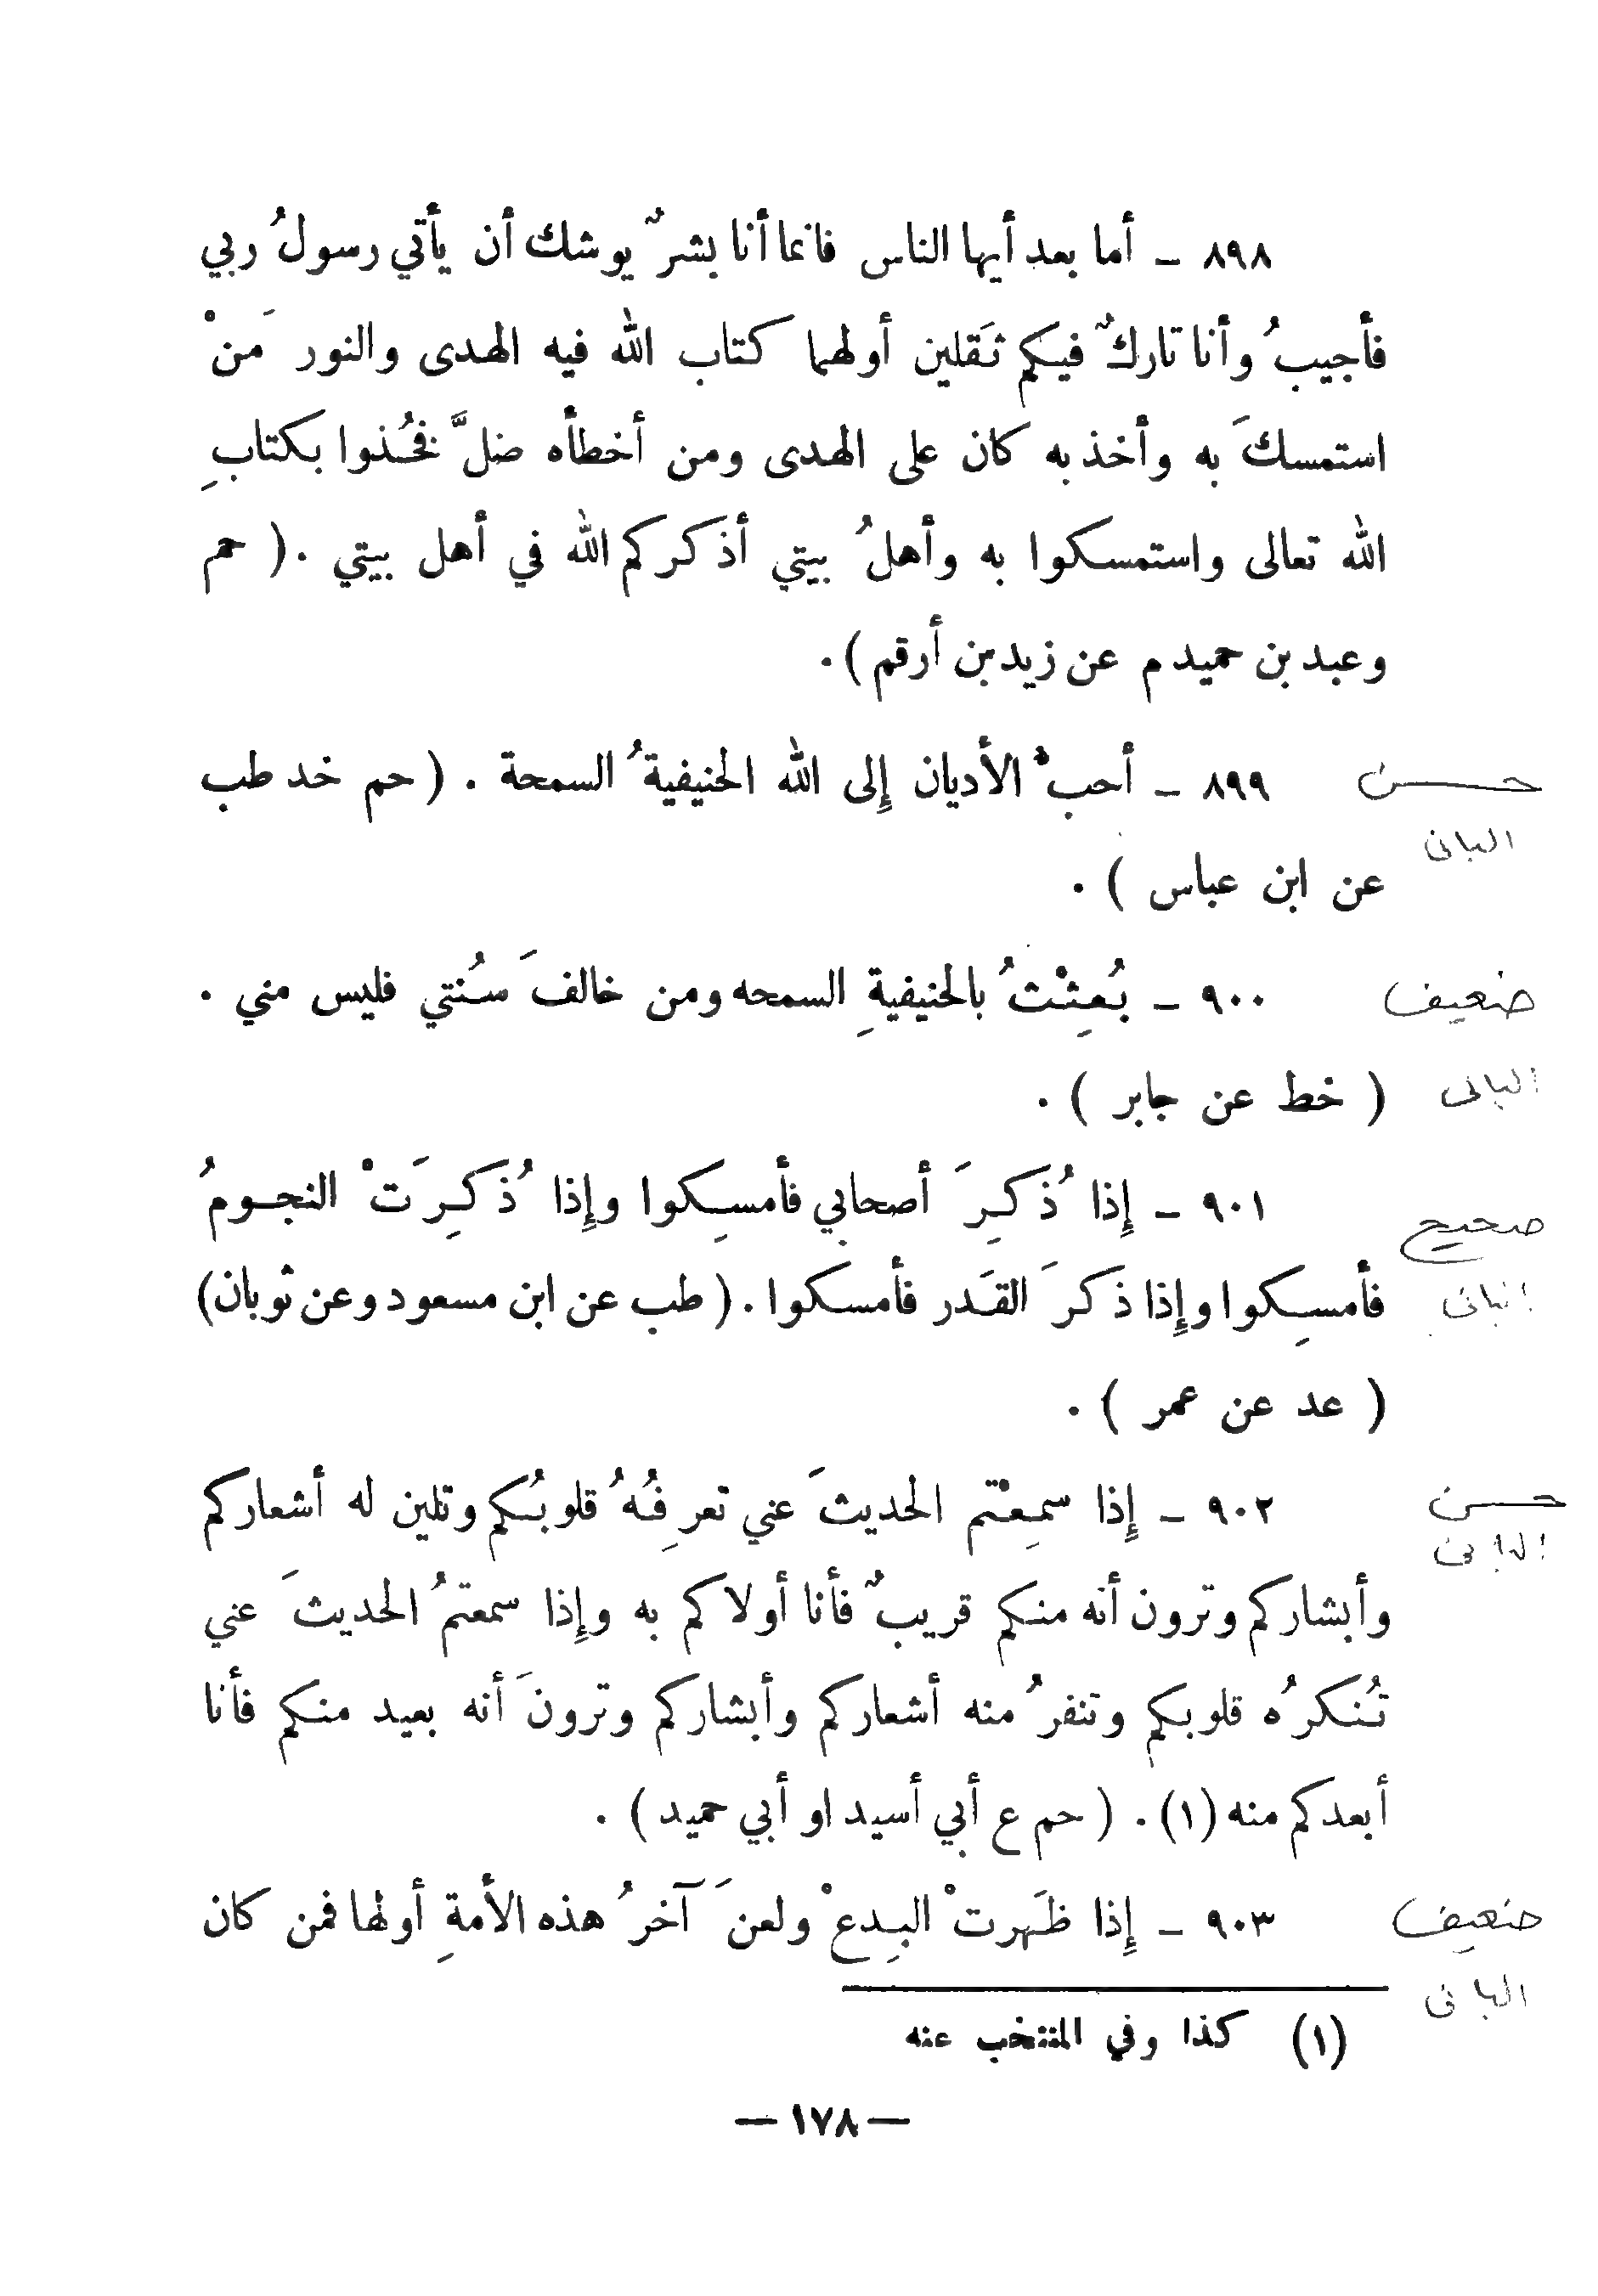 ٨٩٨ ـ أما بعد أيها الناس فانما أنا بشرٌ يوشك أن يأتي رسولُ ربي
فأجيبُ وأنا تاركٌ فيكم ثقَلين أولهما كتاب الله فيه الهدى والنور مَنْ
استمسكَ به وأخذ به كان على الهدى ومن أخطأه ضلَّ فخُذوا بكتابِ
الله تعالى واستمسكوا به وأهلُ بيتي أذكركم الله في أهل بيتي . ( حم
وعبد بن حميد م عن زيد بن أرقم ) .
حسن
٨٩٩ ـ أحبُّ الأديان إِلى الله الحنيفيةُ السمحة . ( حم خد طب
البانى
عن ابن عباس ) .
ضعيف
٩٠٠ ـ بُعِثْتُ بالحنيفيةِ السمحه ومن خالفَ سُنتي فليس مني .
البانى
( خط عن جابر ) .
صحيح
٩٠١ ـ إِذا ذُكِرَ أصحابي فأمسِكوا وإِذا ذُكِرَتْ النجومُ
البانى
فأمسِكوا وإِذا ذكرَ القَدر فأمسكوا . ( طب عن ابن مسعود وعن ثوبان )
( عد عن عمر ) .
حسن
٩٠٢ ـ إِذا سمِعْتم الحديثَ عني تعرِفُهُ قلوبُكم وتلين له أشعاركم
البانى
وأبشاركم وترون أنه منكم قريبٌ فأنا أولاكم به وإِذا سمعتمُ الحديثَ عني
تُنكرُه قلوبكم وتنفرُ منه أشعاركم وأبشاركم وترونَ أنه بعيد منكم فأنا
أبعدكم منه (١) . ( حم ع أبي أسيد او أبي حميد ) .
ضعيف
٩٠٣ ـ إِذا ظَهرتْ البِدعْ ولعنَ آخرُ هذه الأمةِ أولها فمن كان
البانى
(١) كذا وفي المنتخب عنه
— ١٧٨ —